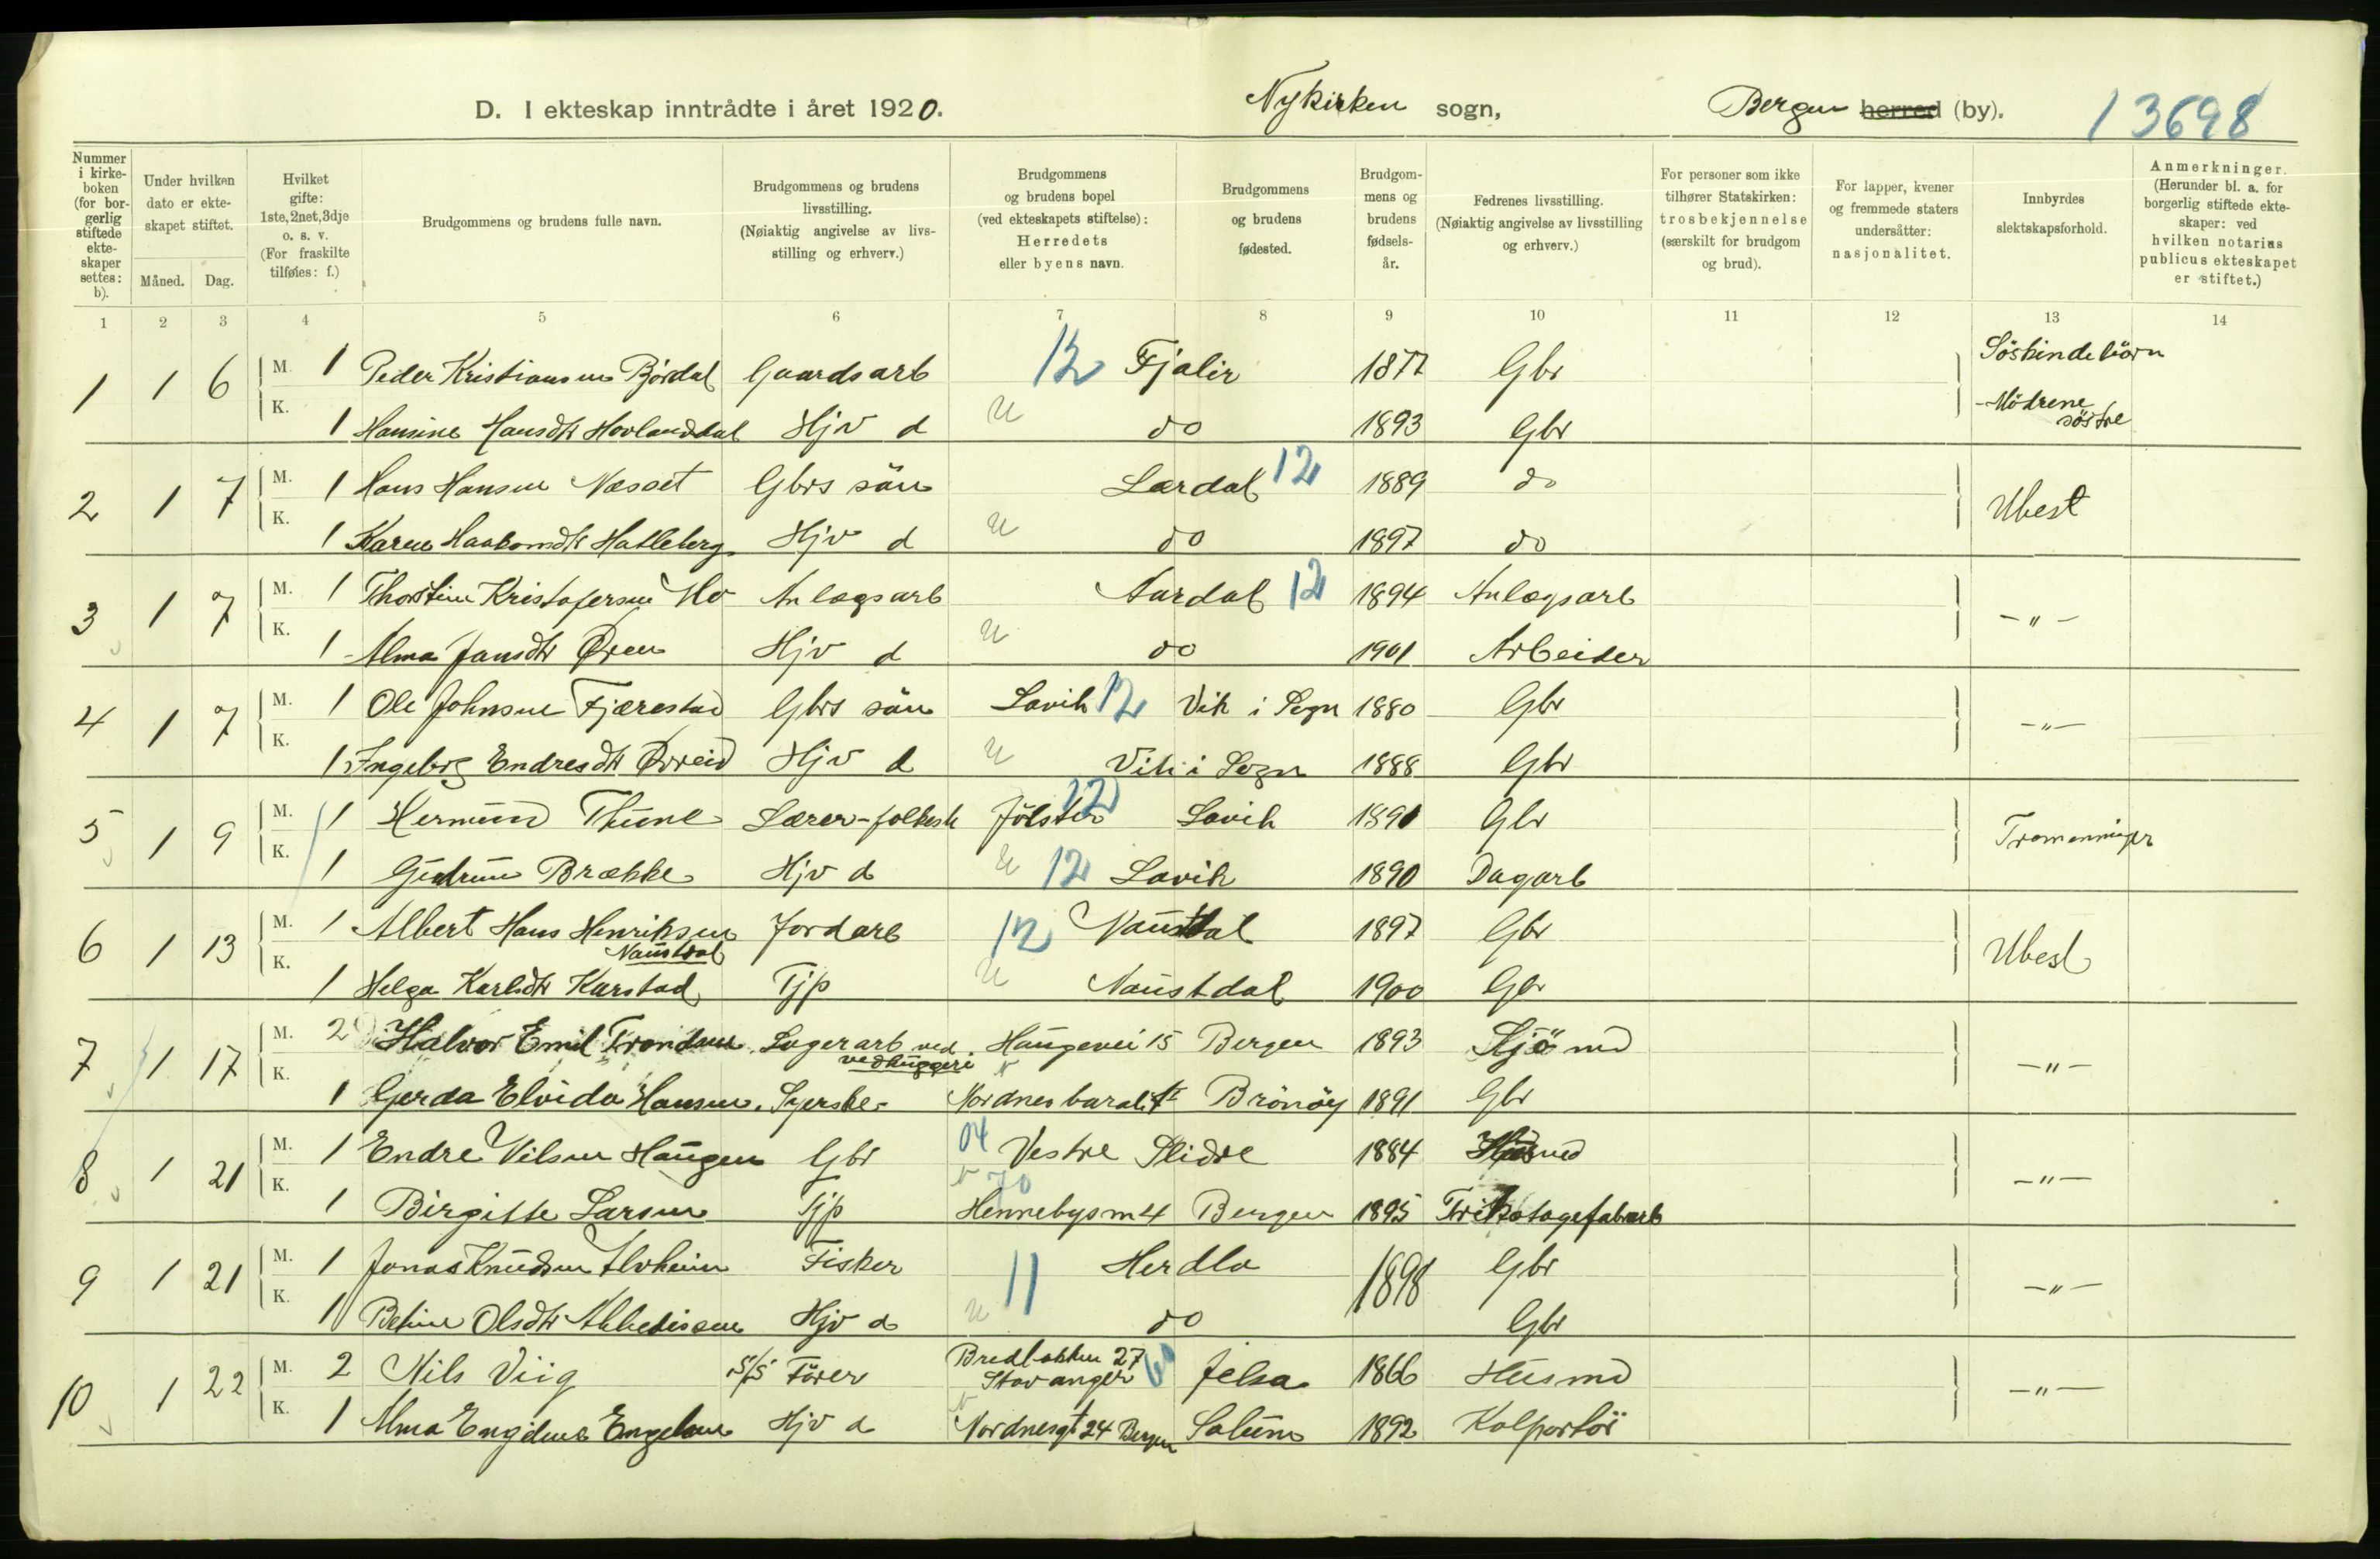 D. I ekteskap inntrådte i året 1920. Nykirken sogn, Bergen herred (by). 13698
Nummer i kirke-boken (for bor-gerlig stiftede ekte-skaper settes: b).
Under hvilken dato er ekte-skapet stiftet.
Måned. Dag.
Hvilket gifte: 1ste, 2net, 3dje o. s. v. (For fraskilte tilføies: f.)
Brudgommens og brudens fulle navn.
Brudgommens og brudens livsstilling. (Nøiaktig angivelse av livs-stilling og erhverv.)
Brudgommens og brudens bopel (ved ekteskapets stiftelse): Herredets eller byens navn.
Brudgommens og brudens fødested.
Brudgom-mens og brudens fødsels-år.
Fedrenes livsstilling. (Nøiaktig angivelse av livsstilling og erhverv.)
For personer som ikke tilhører Statskirken: trosbekjennelse (særskilt for brudgom og brud).
For lapper, kvener og fremmede staters undersåtter: nasjonalitet.
Innbyrdes slektskapsforhold.
Anmerkninger. (Herunder bl. a. for borgerlig stiftede ekte-skaper: ved hvilken notarius publicus ekteskapet er stiftet.)
1 2 3 4 5 6 7 8 9 10 11 12 13 14
1 1 6 M. 1 Peder Kristiansen Bjørdal Gaardsarb 12 Fjalir 1877 Gbr Söskindebörn
K. 1 Hansine Hansdtr Hovlanddal Hjv d u do 1893 Gbr - Mödrene söstre
2 1 7 M. 1 Hans Hansen Næsset Gbrs sön Lærdal 12 1889 do Ubesl
K. 1 Karen Haakonsdtr Hatleberg Hjv d u do 1897 do
3 1 7 M. 1 Thorstein Kristofersen Mo Anlægsarb Aardal 12 1894 Anlægsarb - " -
K. 1 Alma Jansdtr Øren Hjv d u do 1901 Arbeider
4 1 7 M. 1 Ole Johnsen Fjærestad Gbrs sön Lavik 12 Vik i Sogn 1880 Gbr - " -
K. 1 Ingebrg Endresdtr Øvreid Hjv d u Vik i Sogn 1888 Gbr
5 1 9 M. 1 Hermund Thune Lærer-folkesk Jölster 12 Lavik 1891 Gbr Tremenninger
K. 1 Gudrun Brække Hjv d u 12 Lavik 1890 Dagarb
6 1 13 M. 1 Albert Hans Henriksen Naustdal Jordarb 12 Naustdal 1897 Gbr Ubesl
K. 1 Helga Karlsdtr Karstad Tjp u Naustdal 1900 Gbr
7 1 17 M. 2 Halvor Emil Trondsen Lagerarb ved vedhuggeri Haugevei 15 Bergen 1893 Sjömd - " -
K. 1 Gerda Elvida Hansen Syerske Nordnesbarak Brönöy 1891 Gbr
8 1 21 M. 1 Endre Nilsen Haugen Gbr 04 Vestre Slidre 1884 Husmd - " -
K. 1 Birgitte Larsen Tjp Hennebysm 4 Bergen 1895 Trikotagefabarb
9 1 21 M. 1 Jonas Knudsen Alvheim Fisker 11 Herdla 1898 Gbr - " -
K. 1 Beline Olsdtr Hjv d u do Gbr
10 1 22 M. 2 Nils Viig S/S Förer Bredbakken 27 Stavanger Jelsa 1866 Husmd - " -
K. 1 Alma Engeline Engelsen Hjv d Nordnesgt 24 Bergen Solum 1892 Kolportör